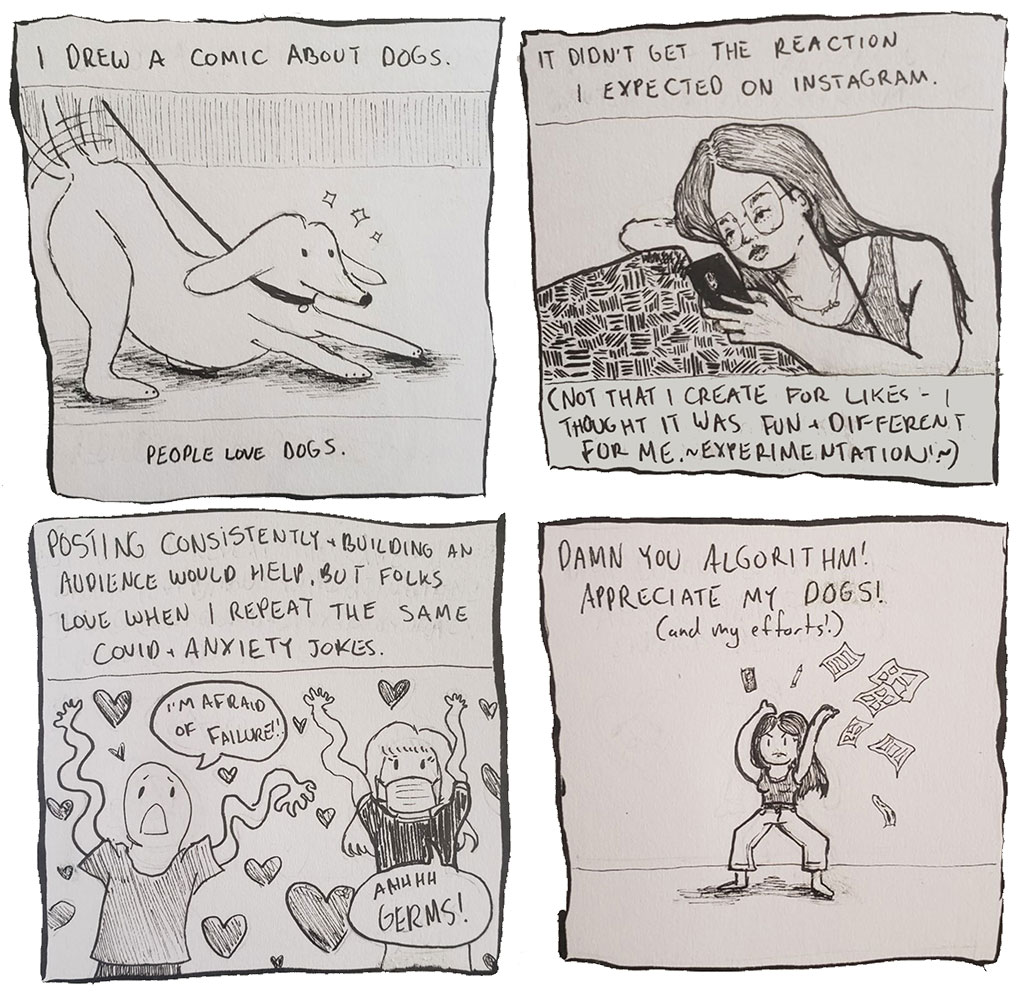 I DREW A COMIC ABOUT DOGS.
PEOPLE LOVE DOGS.
IT DIDN'T GET THE REACTION
I EXPECTED ON INSTAGRAM.
(NOT THAT I CREATE FOR LIKES - I
THOUGHT IT WAS FUN + DIFFERENT
FOR ME. ~EXPERIMENTATION!~)
POSTING CONSISTENTLY + BUILDING AN
AUDIENCE WOULD HELP, BUT FOLKS
LOVE WHEN I REPEAT THE SAME
COVID + ANXIETY JOKES.
I'M AFRAID
OF FAILURE!!
AHHHH
GERMS!
DAMN YOU ALGORITHM!
APPRECIATE MY DOGS!
(and my efforts!)